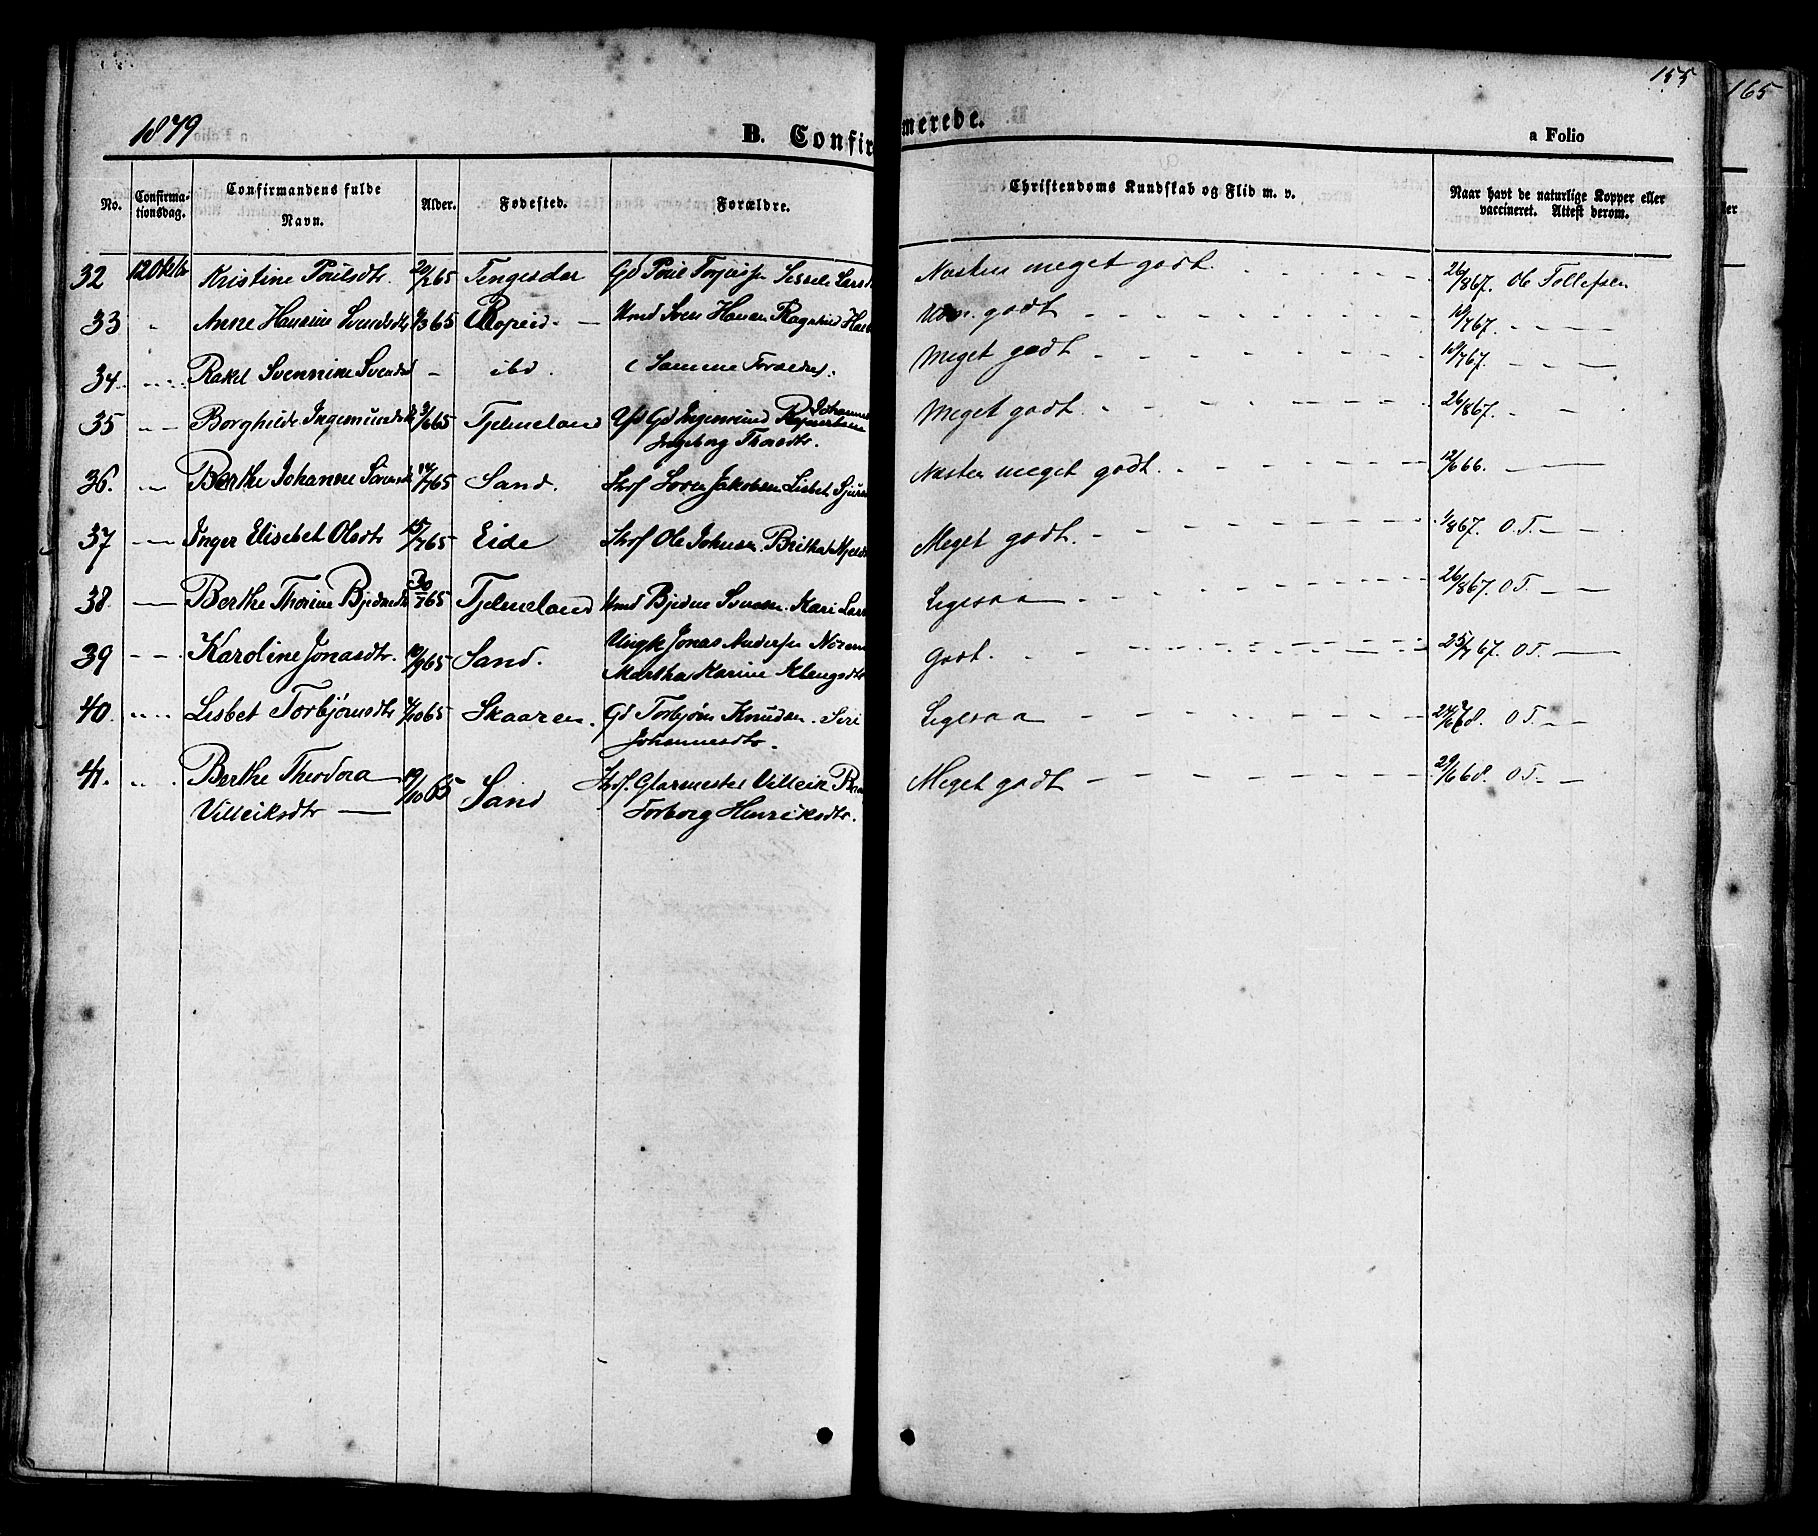 155
165
1879
B. Confir merede.
a Folio
No. Confirma-tionsdag. Confirmandens fulde Navn. Alder. Fødested. Forældre. Christendoms Kundskab og Flid m. v. Naar havt de naturlige Kopper eller vaccineret. Attest derom.
32 12 Oktbr Kristine Poulsdtr. 20/265 Tengesdal Gd Poul Torjusse Sessele Larsd Næsten meget godt. 26/867. Ob Tollefsen
33 Anne Hansine Svendsdtr 9/365 Ropeid Sven Hansen godt 19/767.
34. Rakel Svennine Svendsd ibd. Samme Forældre. Meget godt 19/767.
35 Borghilde Ingemundsdt 3/665 Tjelmeland Gd Ingemund Johannes
Ingeborg Thorsdtr. Meget godt. 26/867.
36. Berthe Johanne Sørensdt 14/765 Sand. Soren Jakobsen Lisbet Sjurs Næsten meget godt. 12/666.
37 Inger Elisebet Olsdtr 15/765 Eide Ole Johnsen Britha Meget godt. 1/867. O.T.
38 Berthe Thorine Bjednedtr 30/765 Tjelmeland Bjedne Svensen Kari Lars Ligesaa 26/867. O T.
39 Karoline Jonasdtr. 10/965 Sand. Ungk Jonas Anderse
Martha Karine Klengsdtr Godt. 25/767. O T.
40. Lisbet Torbjørnsdtr /1065 Skaaren. Gd Torbjørn Knudsen. Siri
Johannesdtr. Ligesaa 27/668. O T.
41. Berthe Theodora 19/1065 Sand Glarmester Villeik Meget godt 29/668. O T.
Villeiksdtr Torborg Henriksdtr.